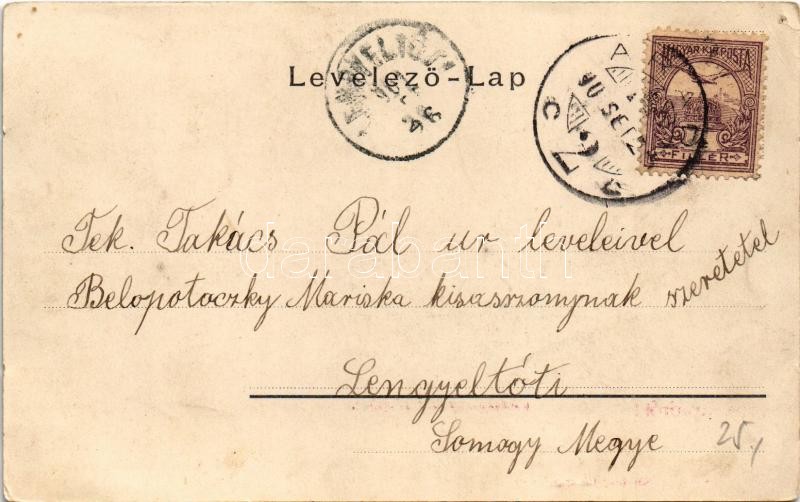 MAGYAR KIR. POSTA
Levelező-Lap
FILLÉR
Tek. Takács Pál ur leveleivel
Belopotoczky Mariska kisasszonynak szeretetel
darabanth
Lengyeltóti
Somogy Megye
25,